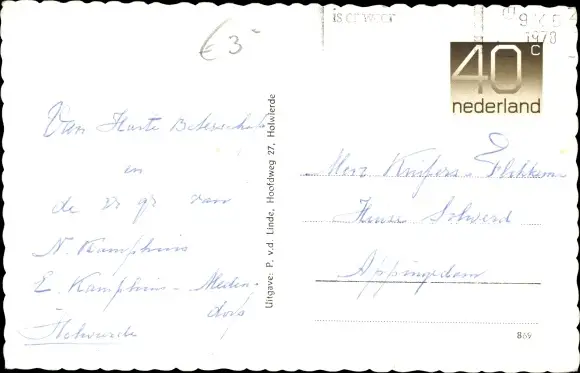 € 3-
9 X
1978
40c
nederland
Van Harte Beterschap
en
de gr van
N. Kamphuis
E. Kamphuis - Meden-
dorp
Holwierde
Uitgave: P. v.d. Linde, Hoofdweg 27, Holwierde
Kuipers
Huize Solwerd
Appingedam
869